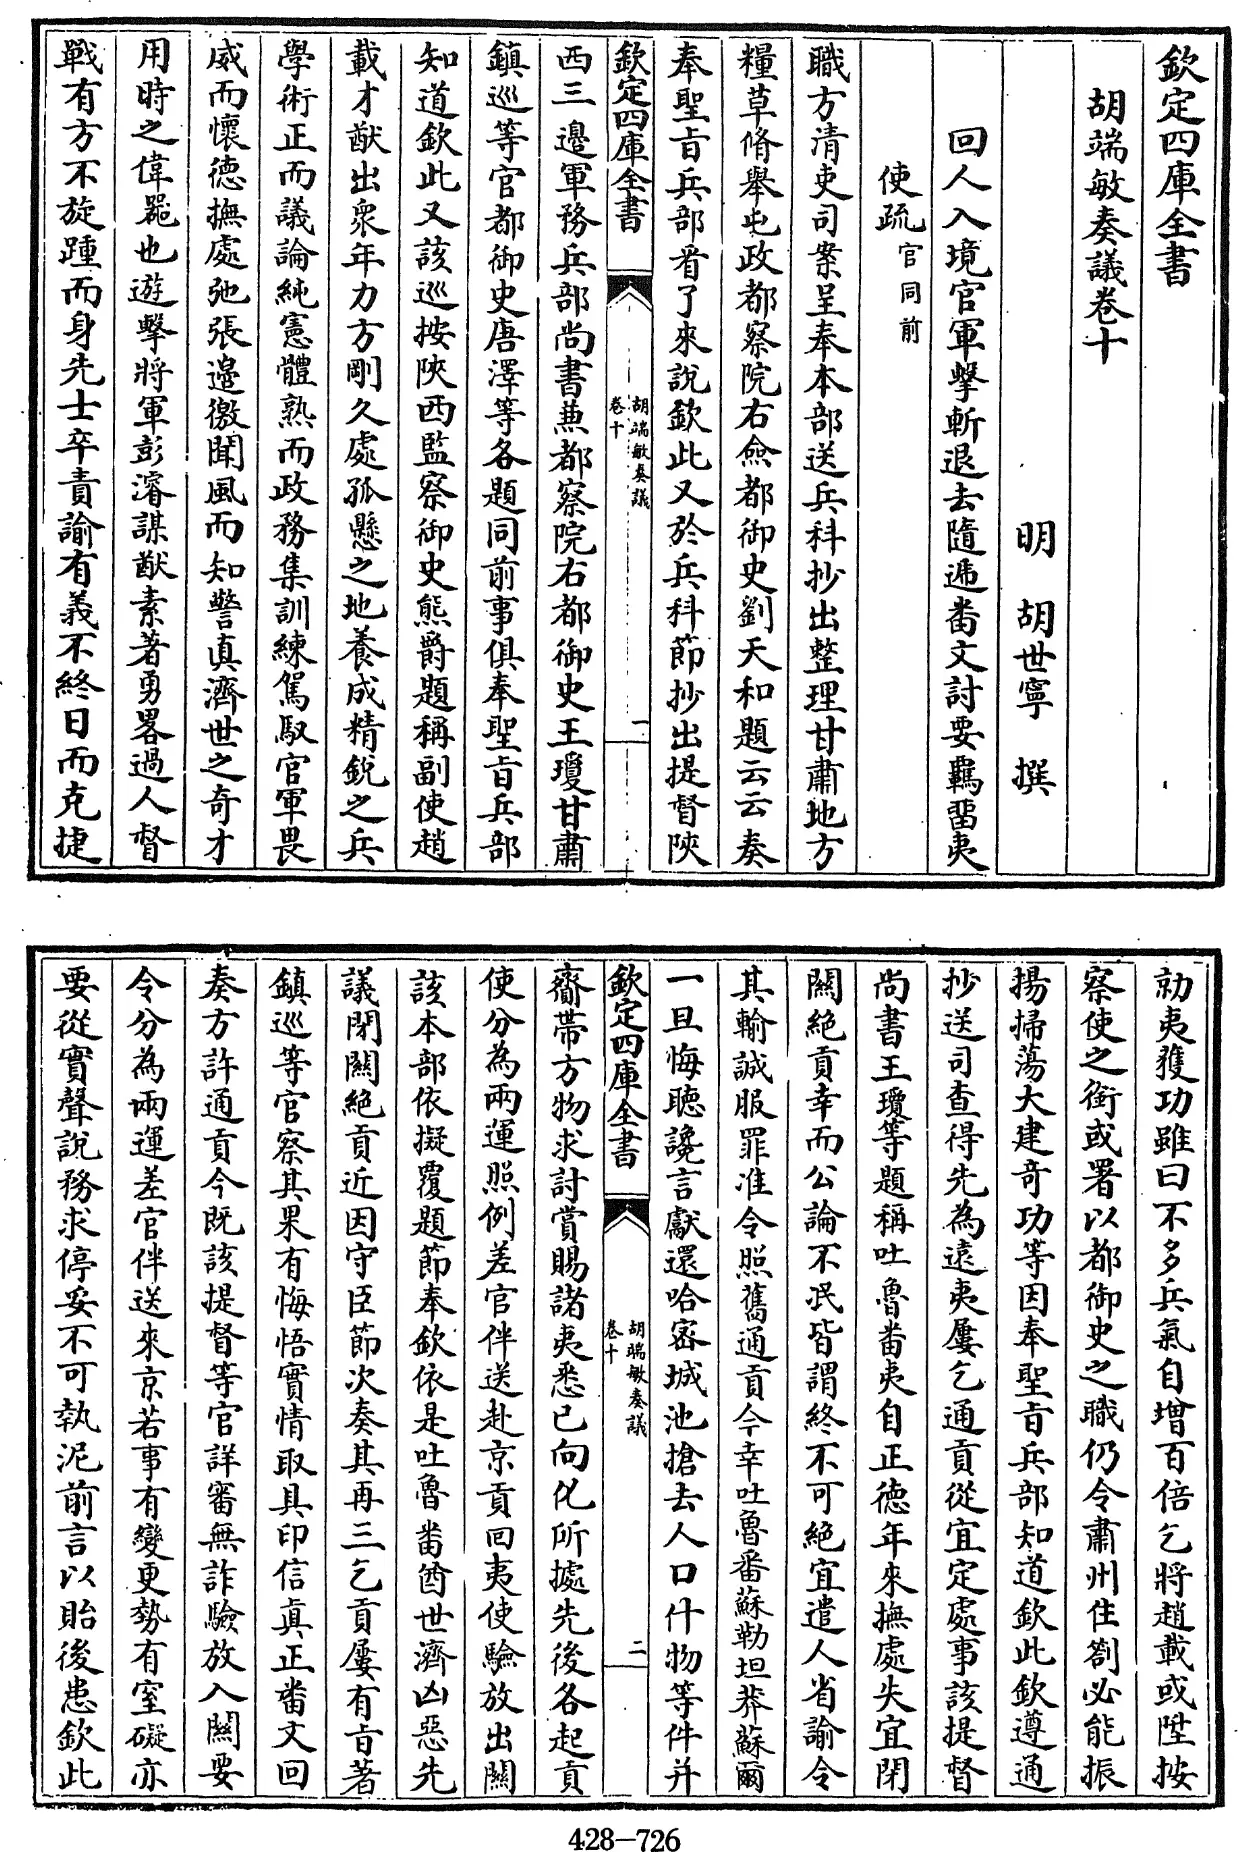 欽定四庫全書
胡端敏奏議卷十
明　胡世寧　撰
回人入境官軍擊斬退去隨遞畨文討要羈留夷
使疏官同前
職方清吏司案呈奉本部送兵科抄出整理甘肅地方
糧草脩舉屯政都察院右僉都御史劉天和題云云奏
奉聖旨兵部看了來說欽此又於兵科節抄出提督陜
欽定四庫全書
胡端敏奏議
卷十
一
西三邉軍務兵部尚書兼都察院右都御史王瓊甘肅
鎮巡等官都御史唐澤等各題同前事俱奉聖旨兵部
知道欽此又該巡按陜西監察御史熊爵題稱副使趙
載才猷出衆年力方剛久處孤懸之地養成精銳之兵
學術正而議論純憲體熟而政務集訓練駕馭官軍畏
威而懷德撫處弛張邉徼聞風而知警真濟世之奇才
用時之偉器也遊擊將軍彭濬謀猷素著勇畧過人督
戰有方不旋踵而身先士卒責諭有義不終日而克捷
劾夷獲功雖曰不多兵氣自增百倍乞將趙載或陞按
察使之銜或署以都御史之職仍令肅州住劄必能振
揚掃蕩大建奇功等因奉聖旨兵部知道欽此欽遵通
抄送司查得先為遠夷屢乞通貢從宜定處事該提督
尚書王瓊等題稱吐魯畨夷自正德年來撫處失宜閉
關絶貢幸而公論不泯皆謂終不可絶宜遣人省諭令
其輸誠服罪准令照舊通貢今幸吐魯番蘇勒坦莽蘇爾
一旦悔聽讒言獻還哈宻城池搶去人口什物等件并
欽定四庫全書
胡端敏奏議
卷十
二
齎帶方物求討賞賜諸夷悉已向化所據先後各起貢
使分為兩運照例差官伴送赴京貢回夷使驗放出關
該本部依擬覆題節奉欽依是吐魯畨酋世濟凶惡先
議閉關絶貢近因守臣節次奏其再三乞貢屢有旨著
鎮巡等官察其果有悔悟實情取具印信真正畨文回
奏方許通貢今既該提督等官詳審無詐驗放入關要
令分為兩運差官伴送來京若事有變更勢有窒礙亦
要從實聲說務求停妥不可執泥前言以貽後患欽此
428-726